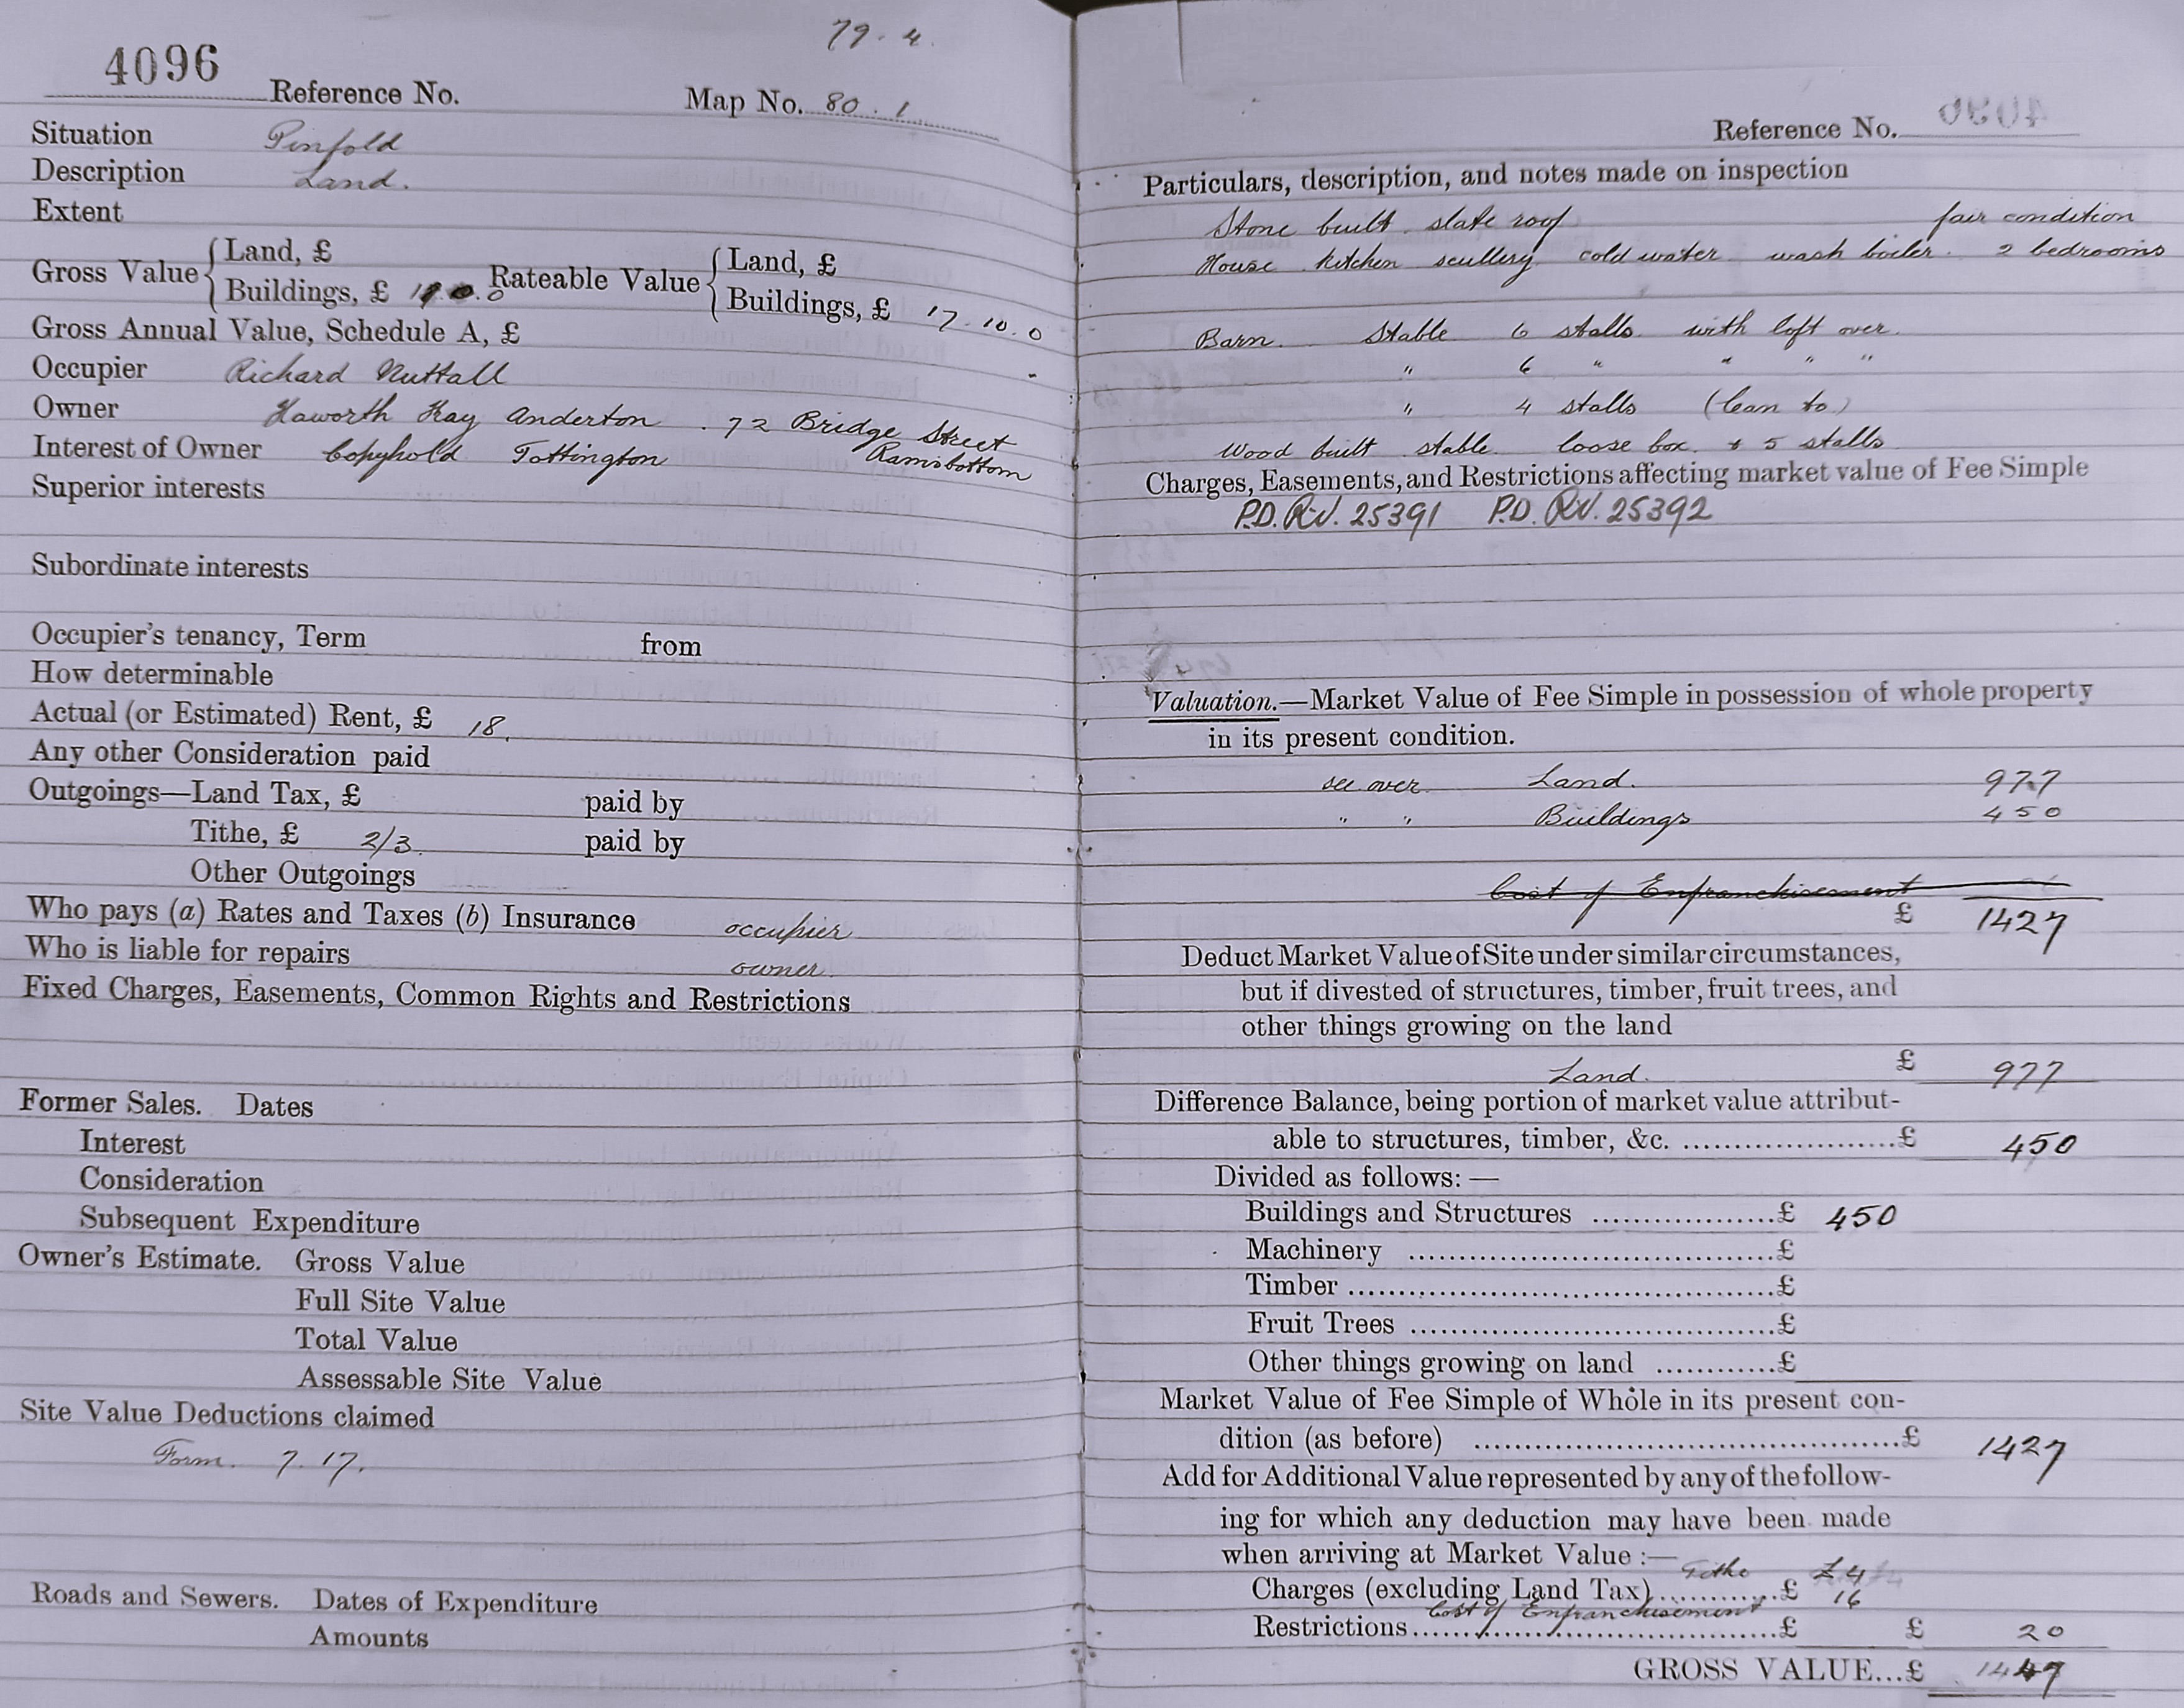 79. 4.
4096 Reference No. Map No. 80. 1
Situation Pinfold
Description Land.
Extent
Gross Value { Land, £ Rateable Value { Land, £
Buildings, £ Buildings, £ 17. 10. 0
Gross Annual Value, Schedule A, £
Occupier Richard Nuttall
Owner Haworth Kay Anderton. 72 Bridge Street
Ramsbottom
Interest of Owner Copyhold Tottington
Superior interests
Subordinate interests
Occupier's tenancy, Term from
How determinable
Actual (or Estimated) Rent, £ 18.
Any other Consideration paid
Outgoings—Land Tax, £ paid by
Tithe, £ 2/3. paid by
Other Outgoings
Who pays (a) Rates and Taxes (b) Insurance occupier
Who is liable for repairs owner.
Fixed Charges, Easements, Common Rights and Restrictions
Former Sales. Dates
Interest
Consideration
Subsequent Expenditure
Owner's Estimate. Gross Value
Full Site Value
Total Value
Assessable Site Value
Site Value Deductions claimed
Form. 7. 17.
Roads and Sewers. Dates of Expenditure
Amounts
Reference No.
Particulars, description, and notes made on inspection
Stone built. slate roof fair condition
House kitchen scullery cold water wash boiler. 2 bedrooms
Barn. Stable 6 stalls with loft over.
" 6 " " " "
" 4 stalls (lean to)
Wood built stable loose box. & 5 stalls
Charges, Easements, and Restrictions affecting market value of Fee Simple
P.D. RV. 25391 P.D. RV. 25392
Valuation.—Market Value of Fee Simple in possession of whole property
in its present condition.
see over. Land. 977
" " Buildings 450
Cost of Enfranchisement
£ 1427
Deduct Market Value of Site under similar circumstances,
but if divested of structures, timber, fruit trees, and
other things growing on the land
Land. £ 977
Difference Balance, being portion of market value attribut-
able to structures, timber, &c. ......................£ 450
Divided as follows: —
Buildings and Structures ...................£ 450
Machinery ........................................£
Timber ..............................................£
Fruit Trees .......................................£
Other things growing on land ............£
Market Value of Fee Simple of Whole in its present con-
dition (as before) ............................................£ 1427
Add for Additional Value represented by any of the follow-
ing for which any deduction may have been made
when arriving at Market Value :—
Charges (excluding Land Tax) Tithe ............£ £4
Restrictions Cost of Enfranchisement ............£ 16 £ 20
GROSS VALUE...£ 1447